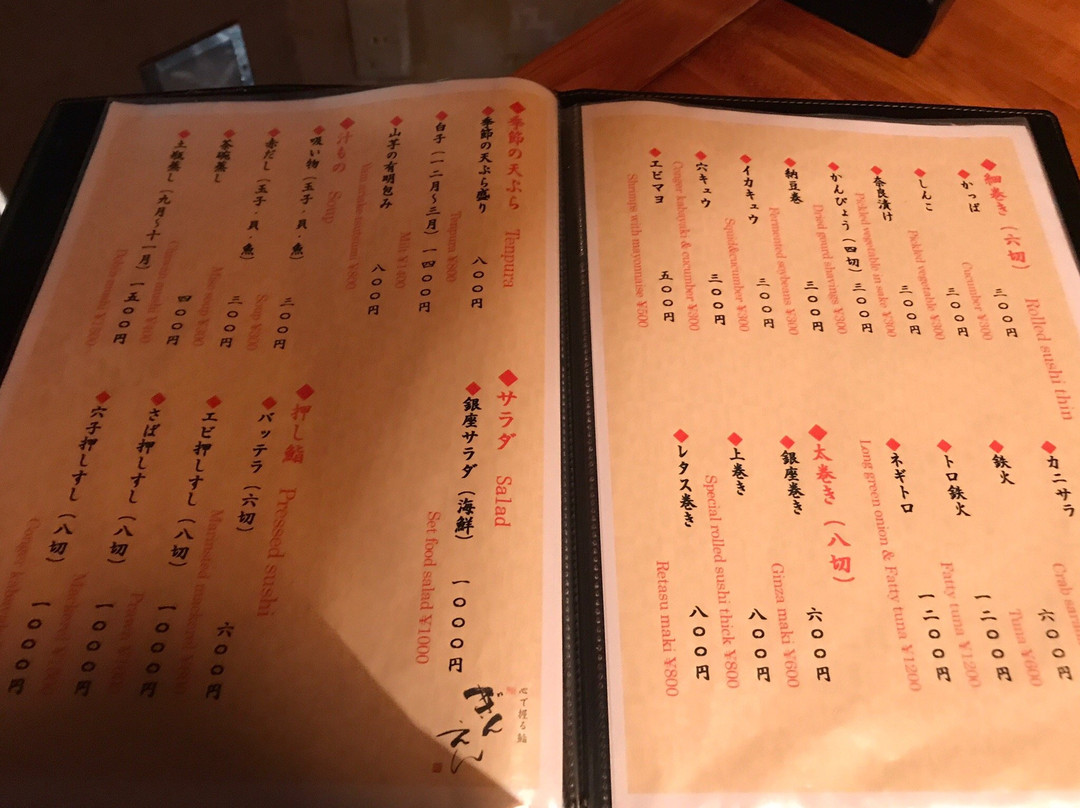 細巻き（六切） Rolled sushi thin
かっぱ 三〇〇円
Cucumber ¥300
しんこ 三〇〇円
Pickled vegetable ¥300
奈良漬け 三〇〇円
Pickled vegetable in sake ¥300
かんぴょう（四切） 三〇〇円
Dried gourd shavings ¥300
納豆巻 三〇〇円
Fermented soybeans ¥300
イカキュウ 三〇〇円
Squid&cucumber ¥300
穴キュウ 三〇〇円
Conger kabayaki & cucumber ¥300
エビマヨ 五〇〇円
Shrimps with mayonnaise ¥500
カニサラ
Crab
鉄火 六〇〇円
Tuna ¥600
トロ鉄火 一二〇〇円
Fatty tuna ¥1200
ネギトロ 一二〇〇円
Long green onion & Fatty tuna ¥1200
太巻き（八切）
銀座巻き 六〇〇円
Ginza maki ¥600
上巻き 八〇〇円
Special rolled sushi thick ¥800
レタス巻き 八〇〇円
Retasu maki ¥800
季節の天ぷら Tenpura
季節の天ぷら盛り 八〇〇円
Tenpura ¥800
白子（一二月〜三月） 一四〇〇円
Milt ¥1400
山芋の有明包み 八〇〇円
¥800
汁もの Soup
吸い物（玉子・貝・魚） 三〇〇円
Soup ¥300
赤だし（玉子・貝・魚） 三〇〇円
Miso soup ¥300
茶碗蒸し 四〇〇円
¥400
土瓶蒸し（九月〜十一月） 一五〇〇円
サラダ Salad
銀座サラダ（海鮮） 一〇〇〇円
Set food salad ¥1000
押し鮨 Pressed sushi
バッテラ（六切） 六〇〇円
Marinated mackerel
エビ押しすし（八切） 一〇〇〇円
さば押しすし（八切） 一〇〇〇円
穴子押しすし（八切） 一〇〇〇円
心で握る鮨
ぎんえん